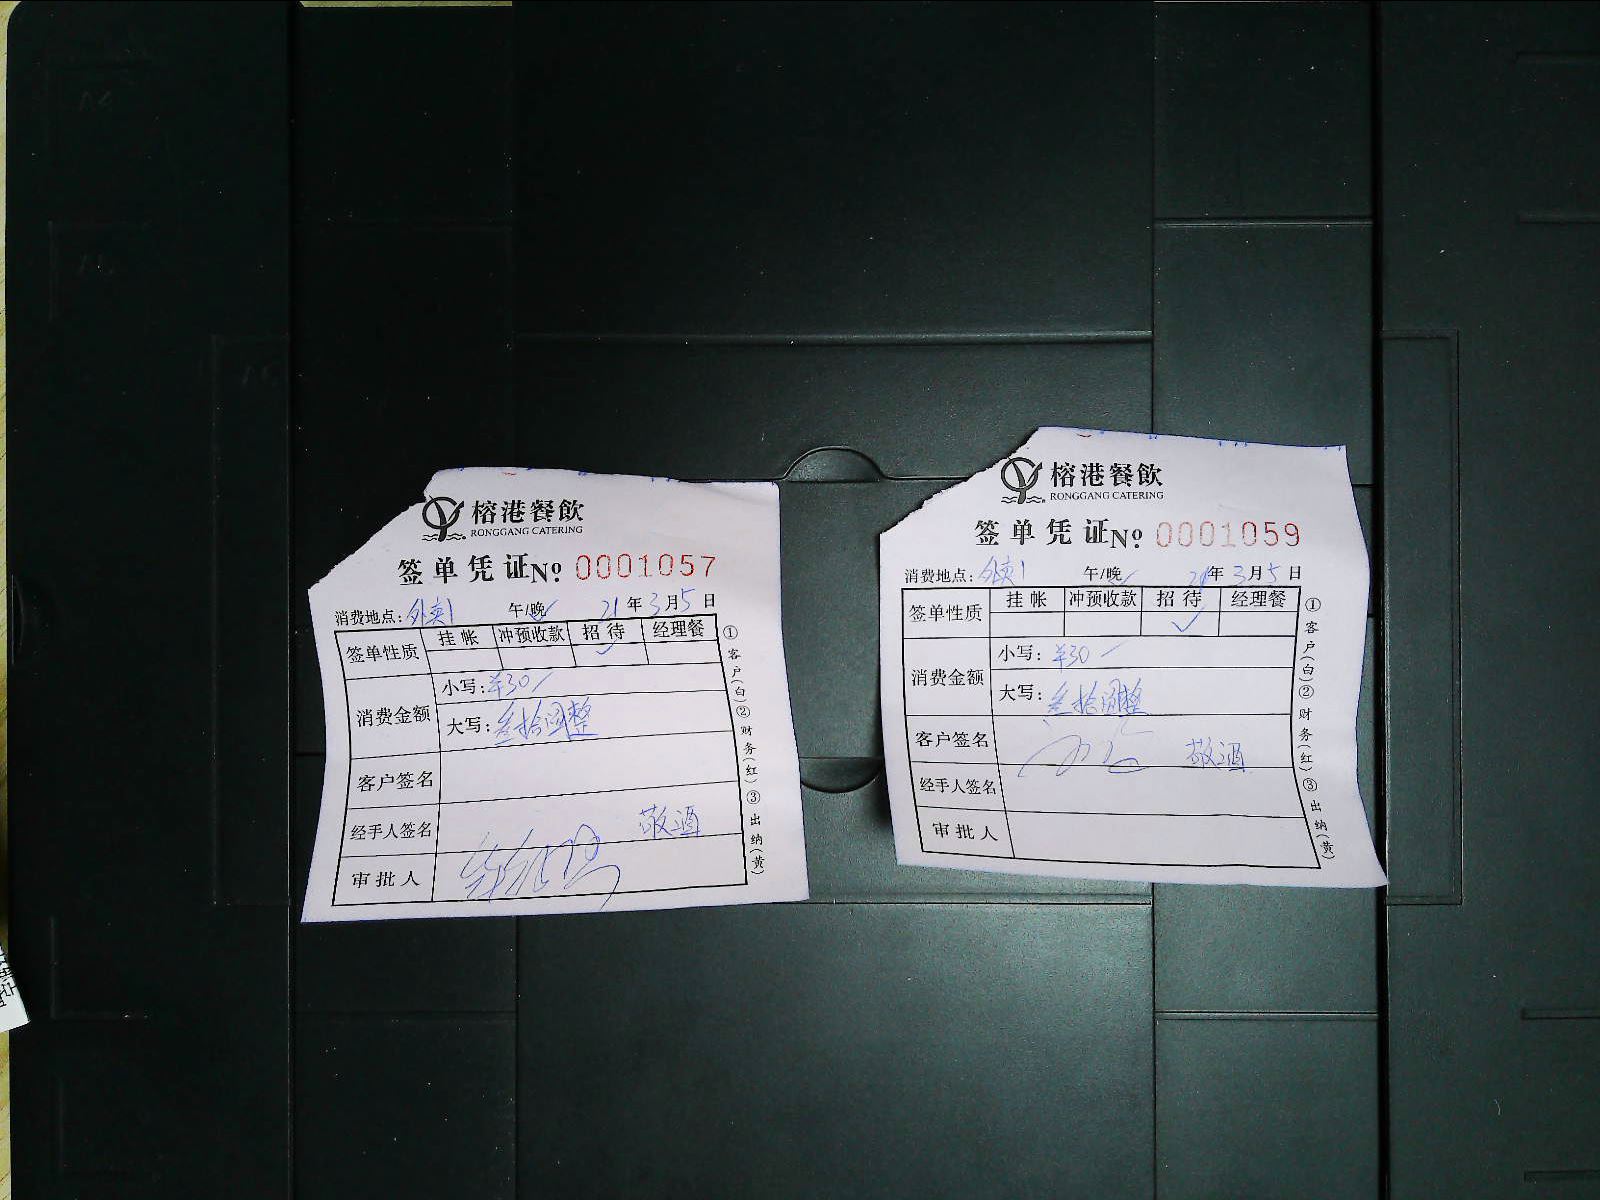 榕港餐飲
RONGGANG CATERING
签单凭证 No 0001057
消费地点: 外卖1 午/晚✓ 21年3月5日
签单性质 挂帐 冲预收款 招待 经理餐
✓
消费金额 小写: ¥30
大写: 叁拾圆整
客户签名
经手人签名 敬酒
审批人
①客户(白)②财务(红)③出纳(黄)
榕港餐飲
RONGGANG CATERING
签单凭证 No 0001059
消费地点: 外卖1 午/晚✓ 21年3月5日
签单性质 挂帐 冲预收款 招待 经理餐
✓
消费金额 小写: ¥30
大写: 叁拾圆整
客户签名 敬酒
经手人签名
审批人
①客户(白)②财务(红)③出纳(黄)